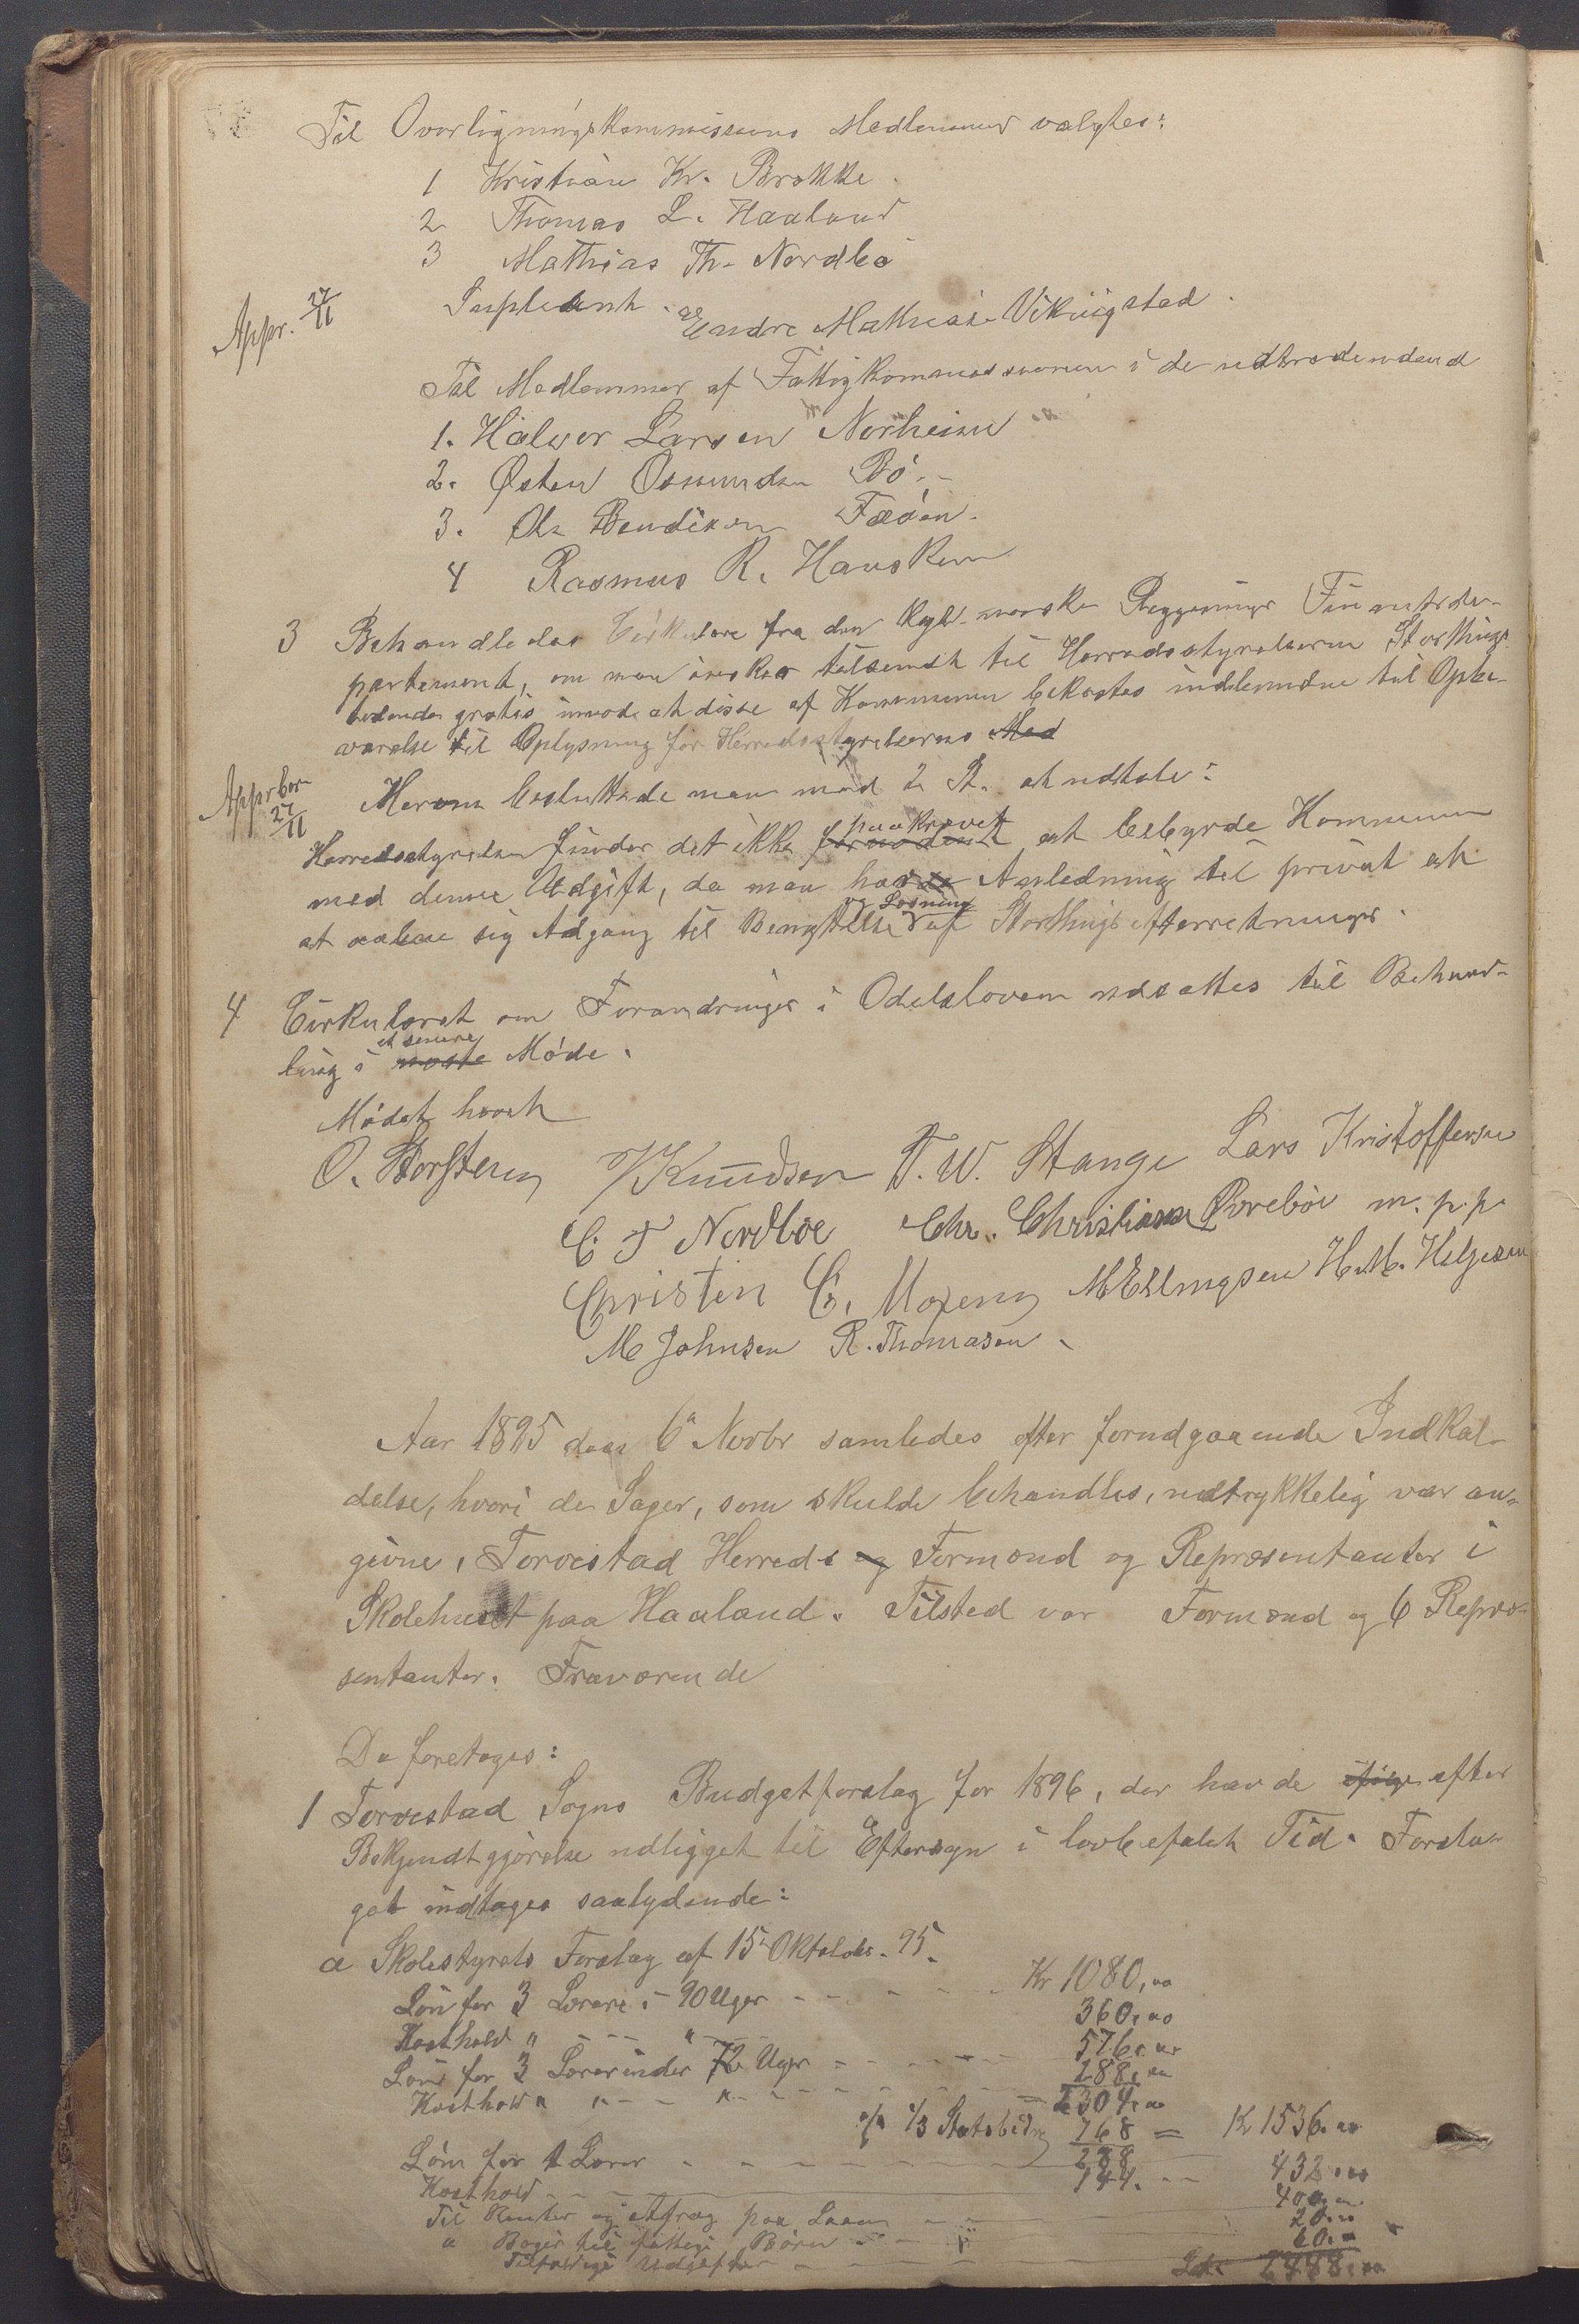 Til Overligningskommissions Medlemmer valgtes:
1 Kristian Kr. Brekke
2 Thomas L. Haaland
3 Mathias Th. Nordbö
Supleant
Endre Mathias. Vikingstad.
Appr. 27/11
Til Medlemmer af Fattigkommissionen i de udtrædendes
1. Halvor Larsen Norheim
2. Østen Osmundsen Bö.
3. Ole Bendiksen Fæöen.
4 Rasmus R. Hausken
3 Behandledes Cirkulære fra den Kgl. norske Regjerings Finantsde-
partement, om man önsker tilsendt til Herredsstyrelserne Storthings-
tidende gratis imod at disse af Kommunen bekostes indbundne til Opbe-
varelse til Oplysning for Herredsstyrelsernes Med
Herom besluttede man med at udtale:
Apprber 27/11
Herredsstyrelsen finder det ikke fornödent paakrævet at bebyrde Kommunen
med denne Udgift, da man havde Anledning til privat at
at skaffe sig Adgang til Benyttelse og Læsning af Storthingsefterretninger.
4 Cirkulæret om Forandringer i Odelsloven udsattes til Behand-
ling i næste et senere Möde.
Mödet hævet
O. Torstensen V Knudsen T. W. Stange Lars Kristoffersen
C T Nordböe Chr. Christiansen Qvreböe m. p. p.
Christen C. M. Ellingsen H. M. Helgesen
M Johnsen R. Thomasen.
Aar 1895 den 6te Novbr samledes efter forudgaaende Indkal-
delse, hvori de Sager, som skulde behandles, udtrykkelig var an-
givne, Torvestad Herreds og Formænd og Repræsentanter i
Skolehuset paa Haaland. Tilsted var Formænd og 6 Repræ-
sentanter. Fraværende
Da foretoges:
1 Torvestad Sogns Budgetforslag for 1896, der havde ifölge efter
Bekjendtgjörelse udligget til Eftersyn i lovbefalet Tid. Forsla-
get indtages saalydende:
a Skolestyrets Forslag af 15de Oktober. 95.
Lön for 3 Lærere i 90 Uger - - - - Kr 1080,00
Kosthold " - - - " - - 360,00
Lön for 3 Lærerinder 72 Uger - - - - 576,00
Kosthold " " - - " - - - - 288,00
2304,00
÷ 1/3 Statsbidrag 768 = Kr 1536.00
Lön for 1 Lærer - - - - - 288
Kosthold - - - 144. -- 432,00
Til Renter og Afdrag paa Laan - - 400,00
" Böger til fattige Börn - - - 20.00
Tilfældige Udgifter - - - 60.00
Lts. 2448,00